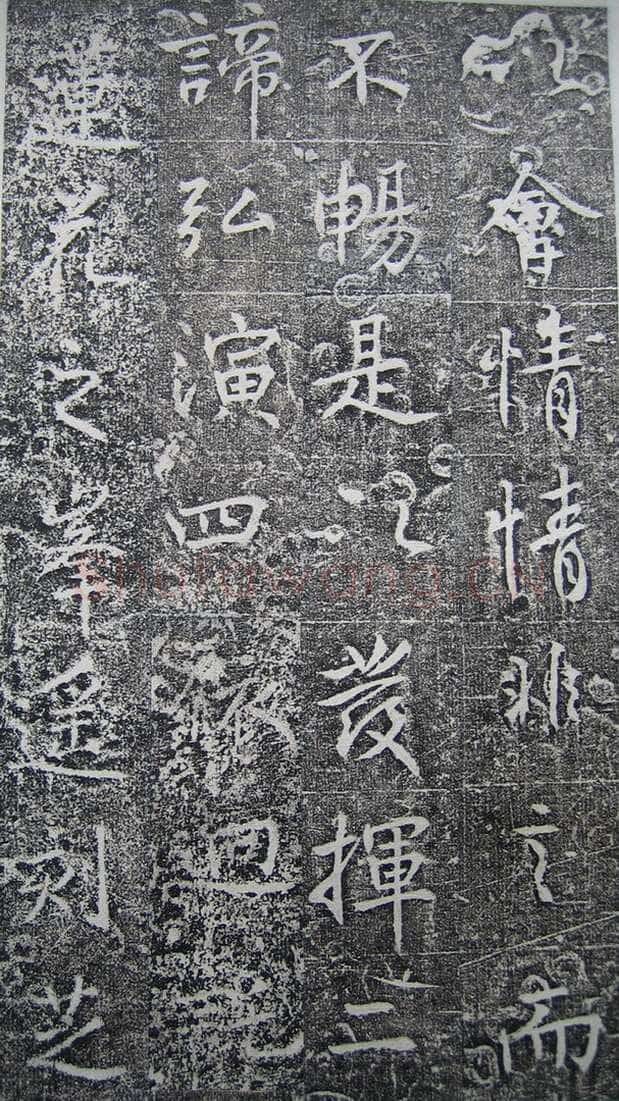 會情情非言而
不暢是以發揮二
諦弘演四迴
蓮花之峯遥刻芝
shufawang.cn